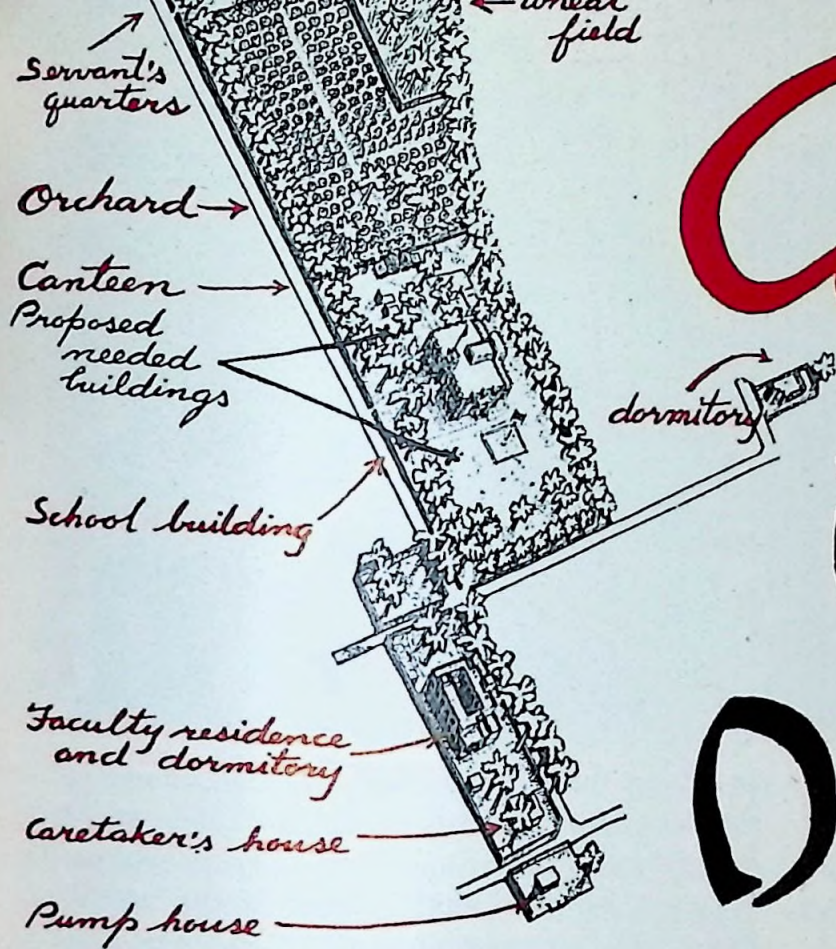 field
Servant's
quarters
Orchard
Canteen
Proposed
needed
buildings
dormitory
School building
Faculty residence
and dormitory
Caretaker's house
Pump house